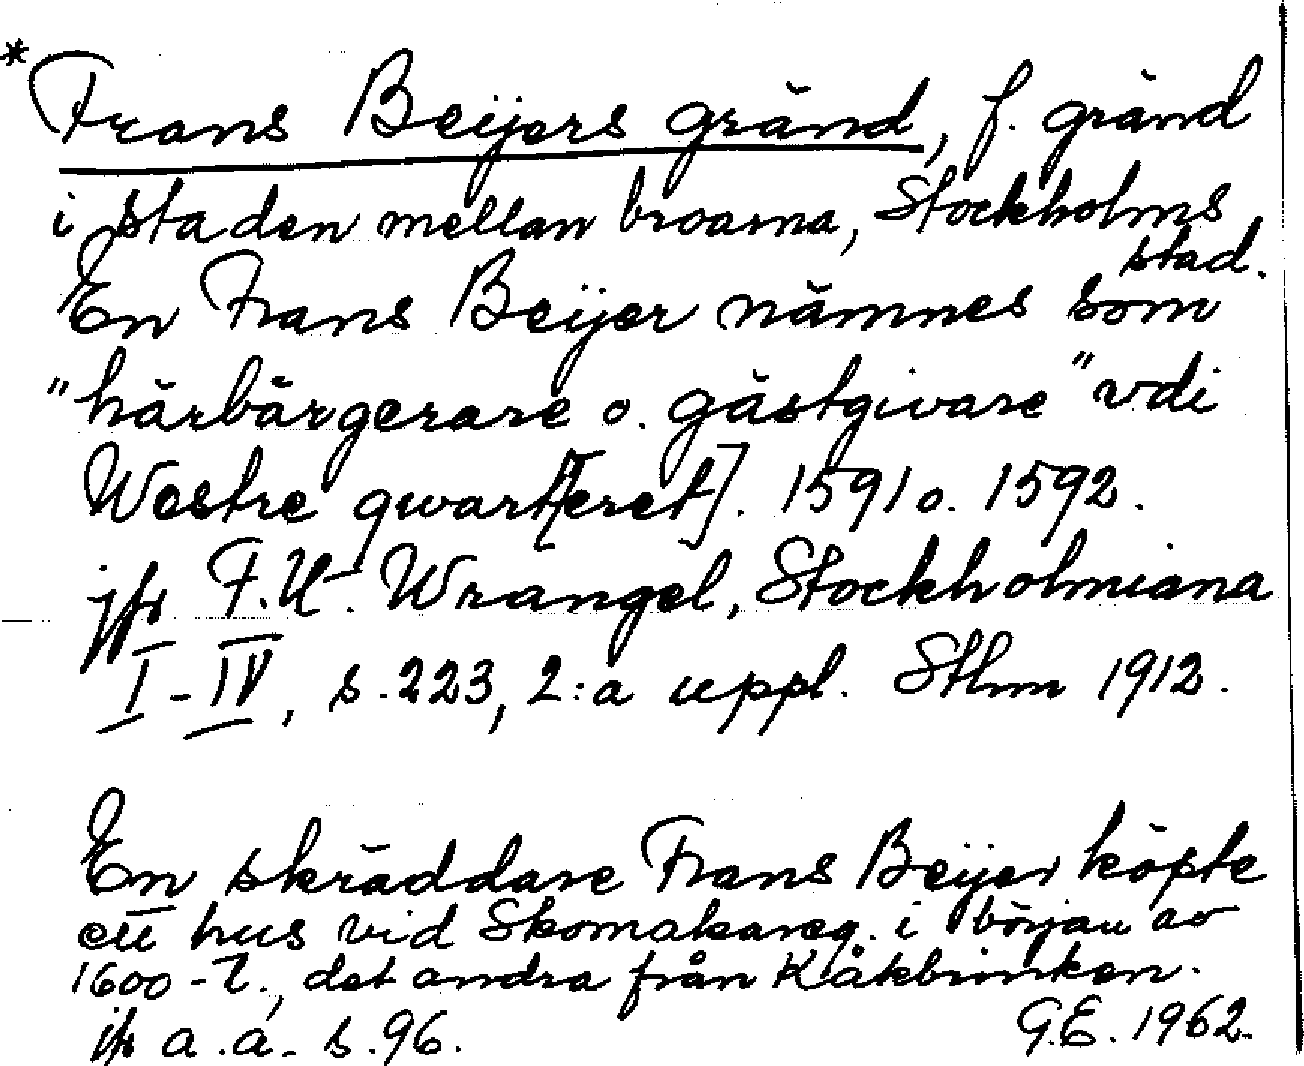 * Frans Beijers gränd, f. gränd
i staden mellan broarna, Stockholms
stad.
En Frans Beijer nämnes som
"härbärgerare o. gästgivare" vdi
Westre qwart[eret]. 1591 o. 1592.
jfr F.U. Wrangel, Stockholmiana
I-IV, s. 223, 2:a uppl. Sthm 1912.
En skräddare Frans Beijer köpte
ett hus vid Skomakareg. i början av
1600-t., det andra från Kåkbrinken.
jfr a.a. s. 96.
G.E. 1962.